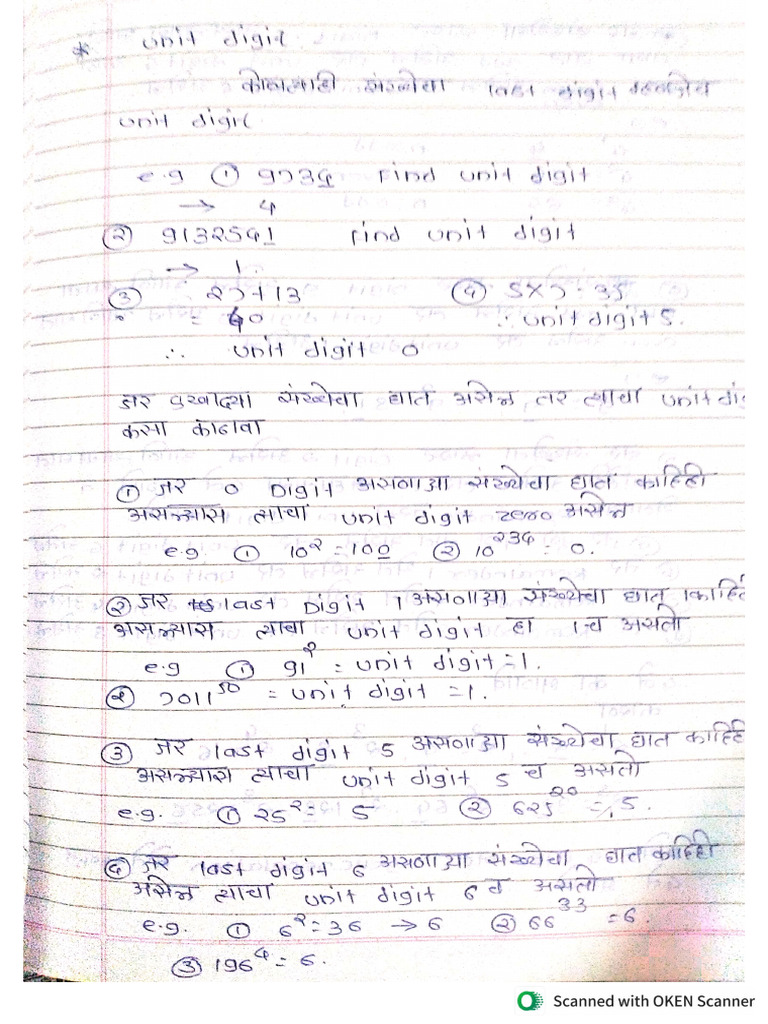 * unit digit
कोणत्याही संख्येचा last digit म्हणजेच
unit digit
e.g ① 9734 Find unit digit
→ 4
② 9132541 Find unit digit
→ 1
③ 27+13 ④ 5×7=35
= 40 ∴ unit digit 5.
∴ unit digit 0
जर एखाद्या संख्येचा घात असेल तर त्याचा unit digi
कसा काढावा
① जर 0 Digit असणाऱ्या संख्येचा घात काहिही
असल्यास त्याचा unit digit zero असेल
e.g ① 10² = 100 ② 10²³⁴ = 0.
② जर last Digit 1 असणाऱ्या संख्येचा घात काहि
असल्यास त्याचा unit digit हा 1च असतो
e.g ① 91² = unit digit =1.
② 7011⁵⁰ = unit digit =1.
③ जर last digit 5 असणाऱ्या संख्येचा घात काहिही
असल्यास त्याचा unit digit 5 च असतो
e.g. ① 25² = 5 ② 625²⁰ = 5.
④ जर last digit 6 असणाऱ्या संख्येचा घात काहिही
असेल त्याचा unit digit 6 च असतो
e.g. ① 6² = 36 → 6 ② 66³³ = 6.
③ 196⁴ = 6.
Scanned with OKEN Scanner